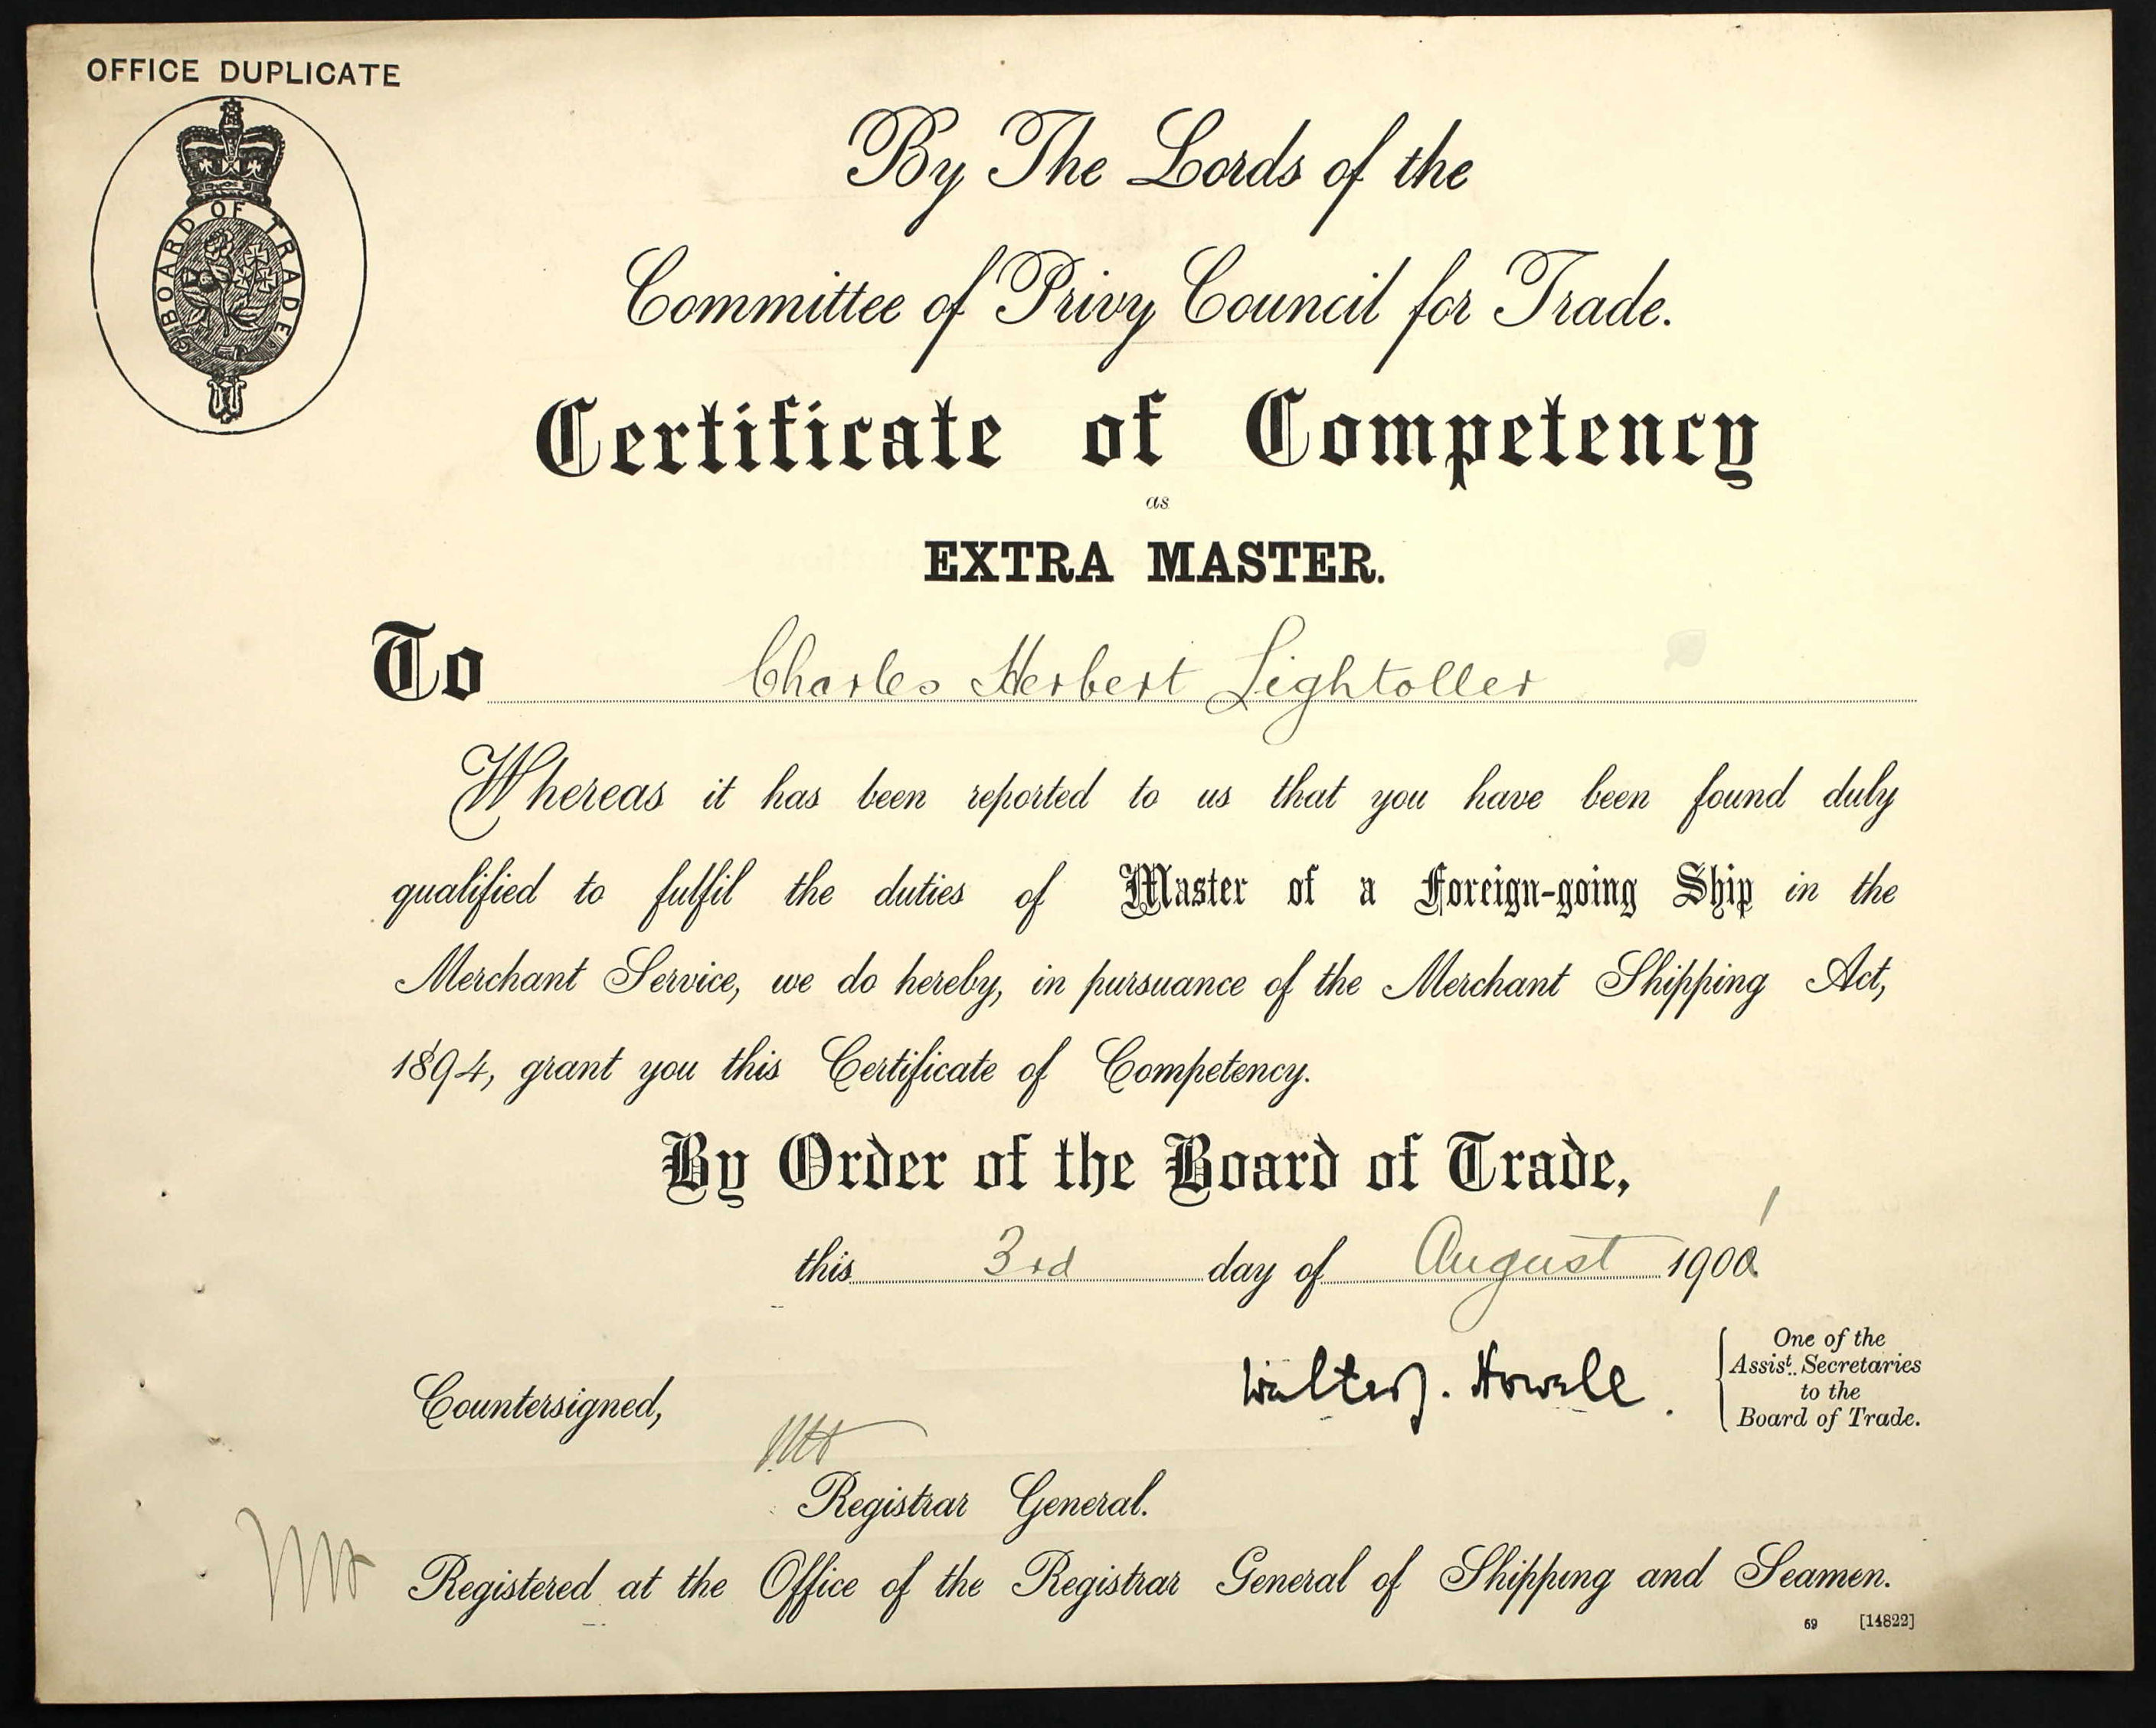 OFFICE DUPLICATE
BOARD OF TRADE
By The Lords of the
Committee of Privy Council for Trade.
Certificate of Competency
as
EXTRA MASTER.
To Charles Herbert Lightoller
Whereas it has been reported to us that you have been found duly
qualified to fulfil the duties of Master of a Foreign-going Ship in the
Merchant Service, we do hereby, in pursuance of the Merchant Shipping Act,
1894, grant you this Certificate of Competency.
By Order of the Board of Trade,
this 3rd day of August 1900 1
Walter J. Howell.
One of the
Assist. Secretaries
to the
Board of Trade.
Countersigned,
Registrar General.
Registered at the Office of the Registrar General of Shipping and Seamen.
69 [14822]